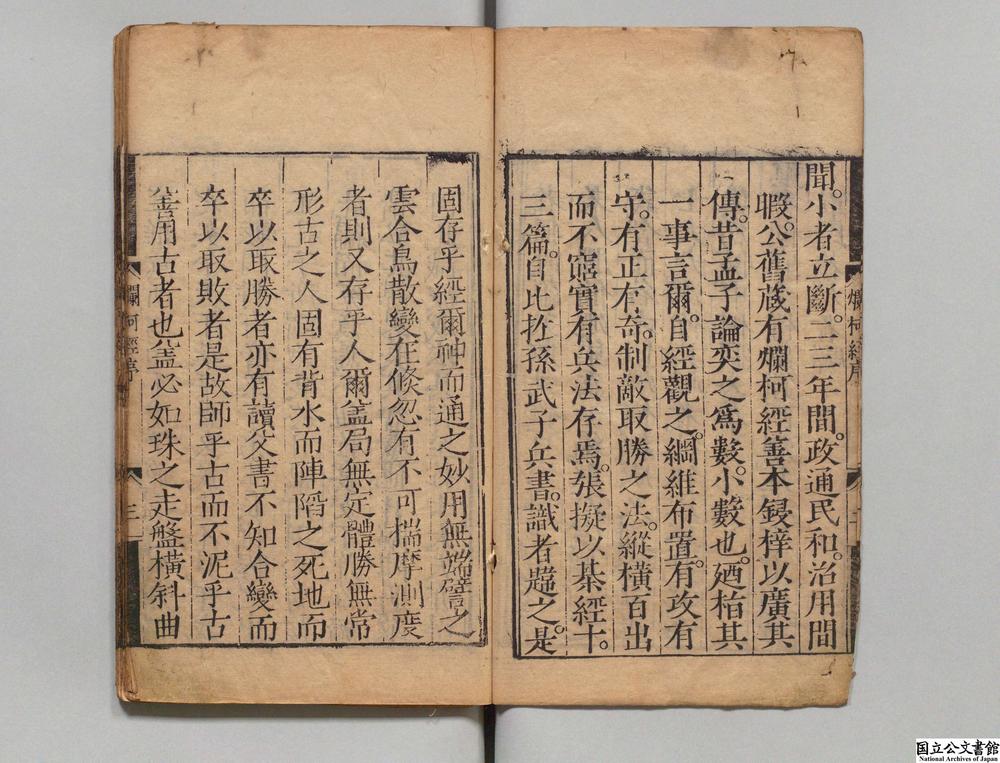 聞。小者立斷。二三年間。政通民和。治用間
暇。公舊蔵有爛柯經善本鋟梓以廣其
傳。昔孟子論奕之爲數。小數也。廼枱其
一事言爾。自經觀之。綱維布置。有攻有
守。有正有竒。制敵取勝之法。縱橫百出
而不窮實有兵法存焉。張擬以棊經十。
三篇。自比扵孫武子兵書。識者韙之。是
爛柯經序
固存乎經爾神而通之妙用無端譬之
雲合鳥散變在倐忽有不可揣摩測度
者則又存乎人爾盖局無定體勝無常
形古之人固有背水而陣陷之死地而
卒以取勝者亦有讀父書不知合變而
卒以取敗者是故師乎古而不泥乎古
善用古者也盖必如珠之走盤橫斜曲
爛柯經序
三
国立公文書館
National Archives of Japan